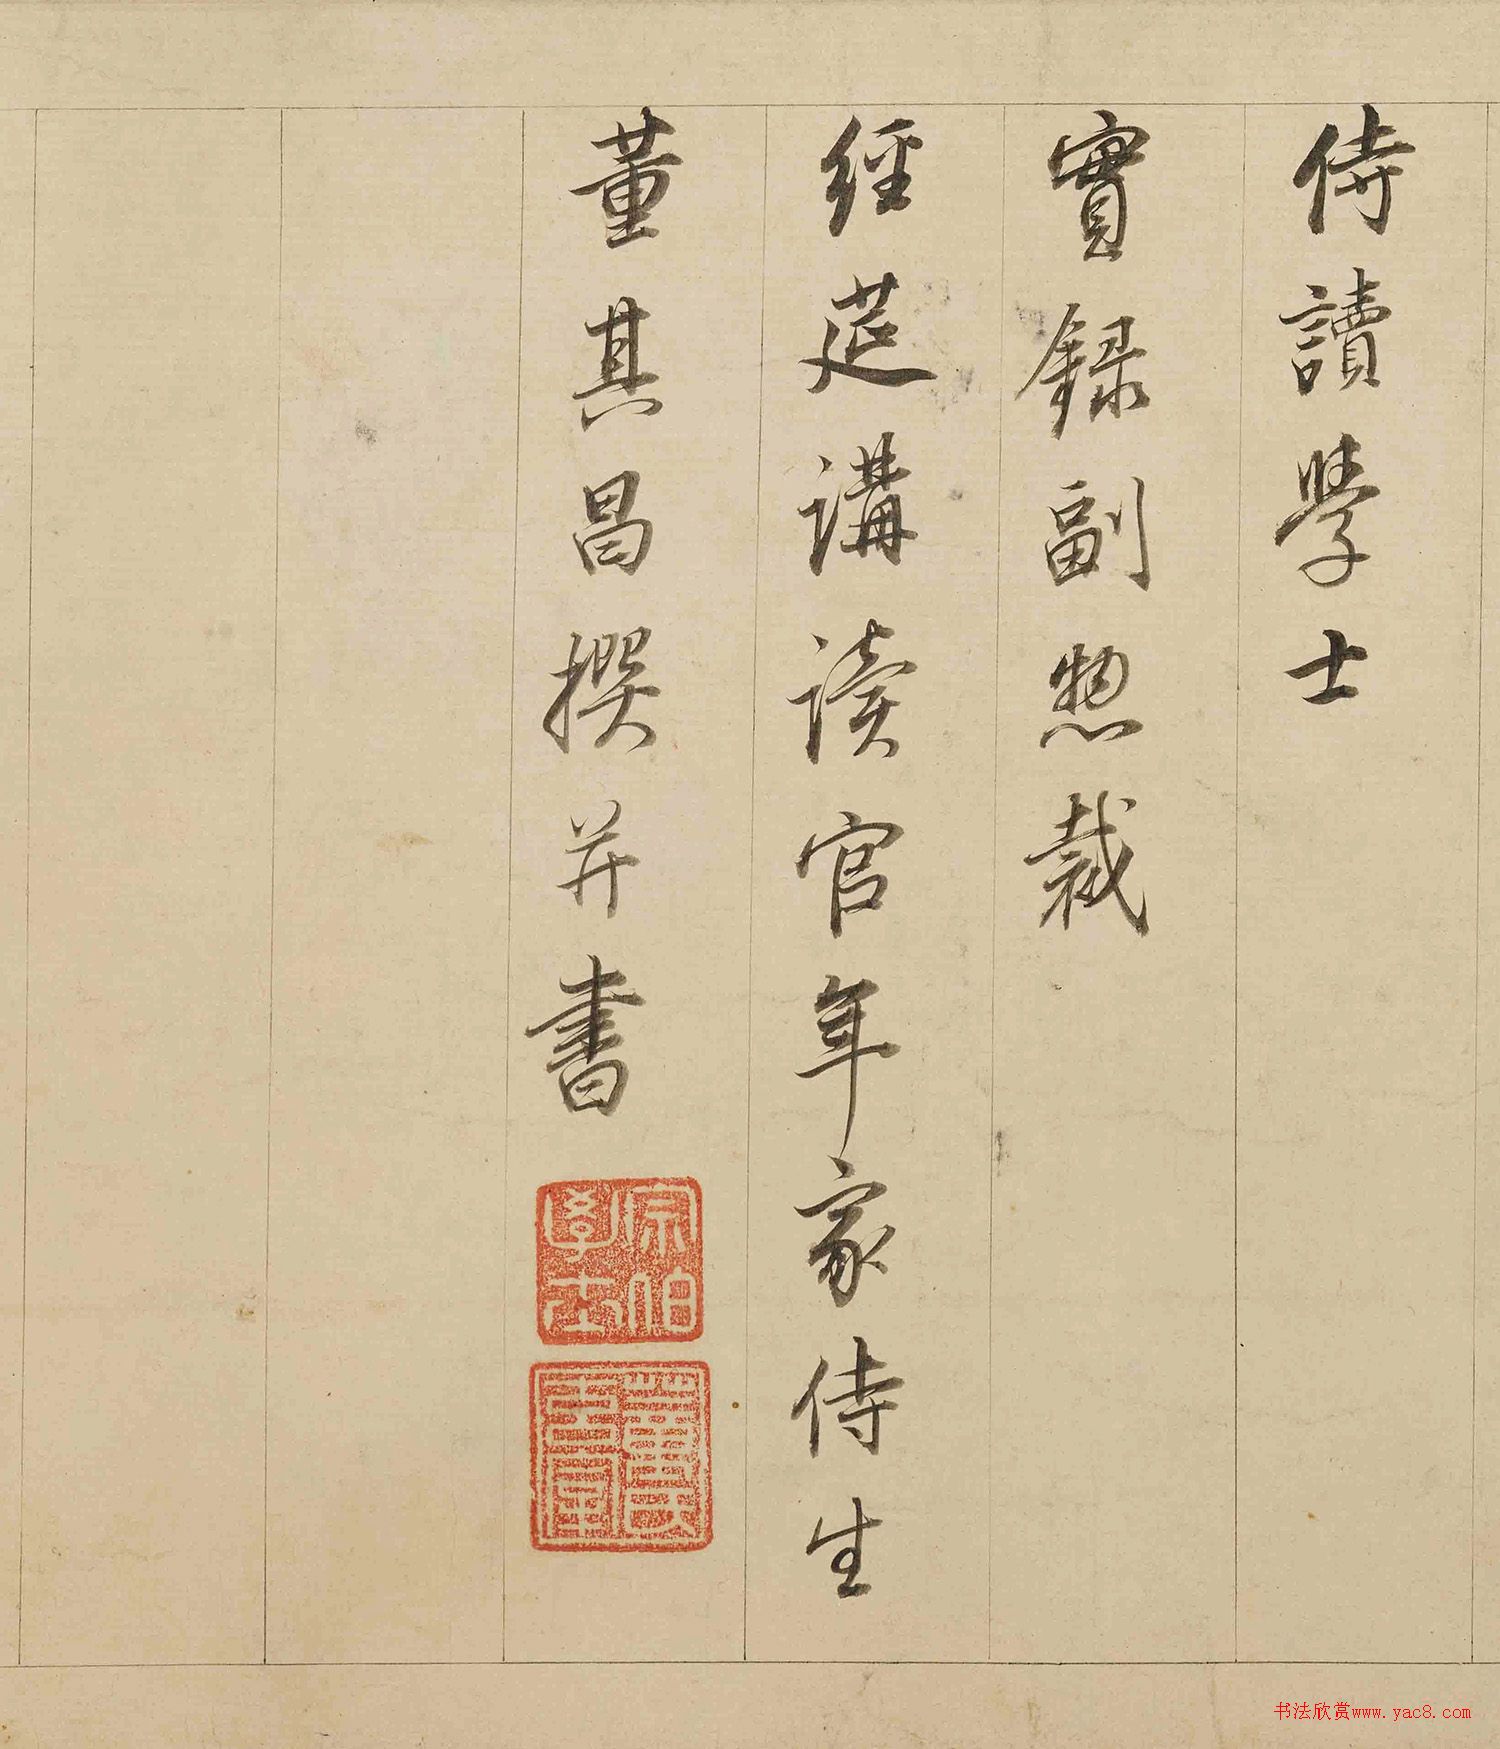 侍讀學士
實録副惣裁
經莚講讀官年家侍生
董其昌撰并書
宗伯學士
董氏玄宰
书法欣赏www.yac8.com